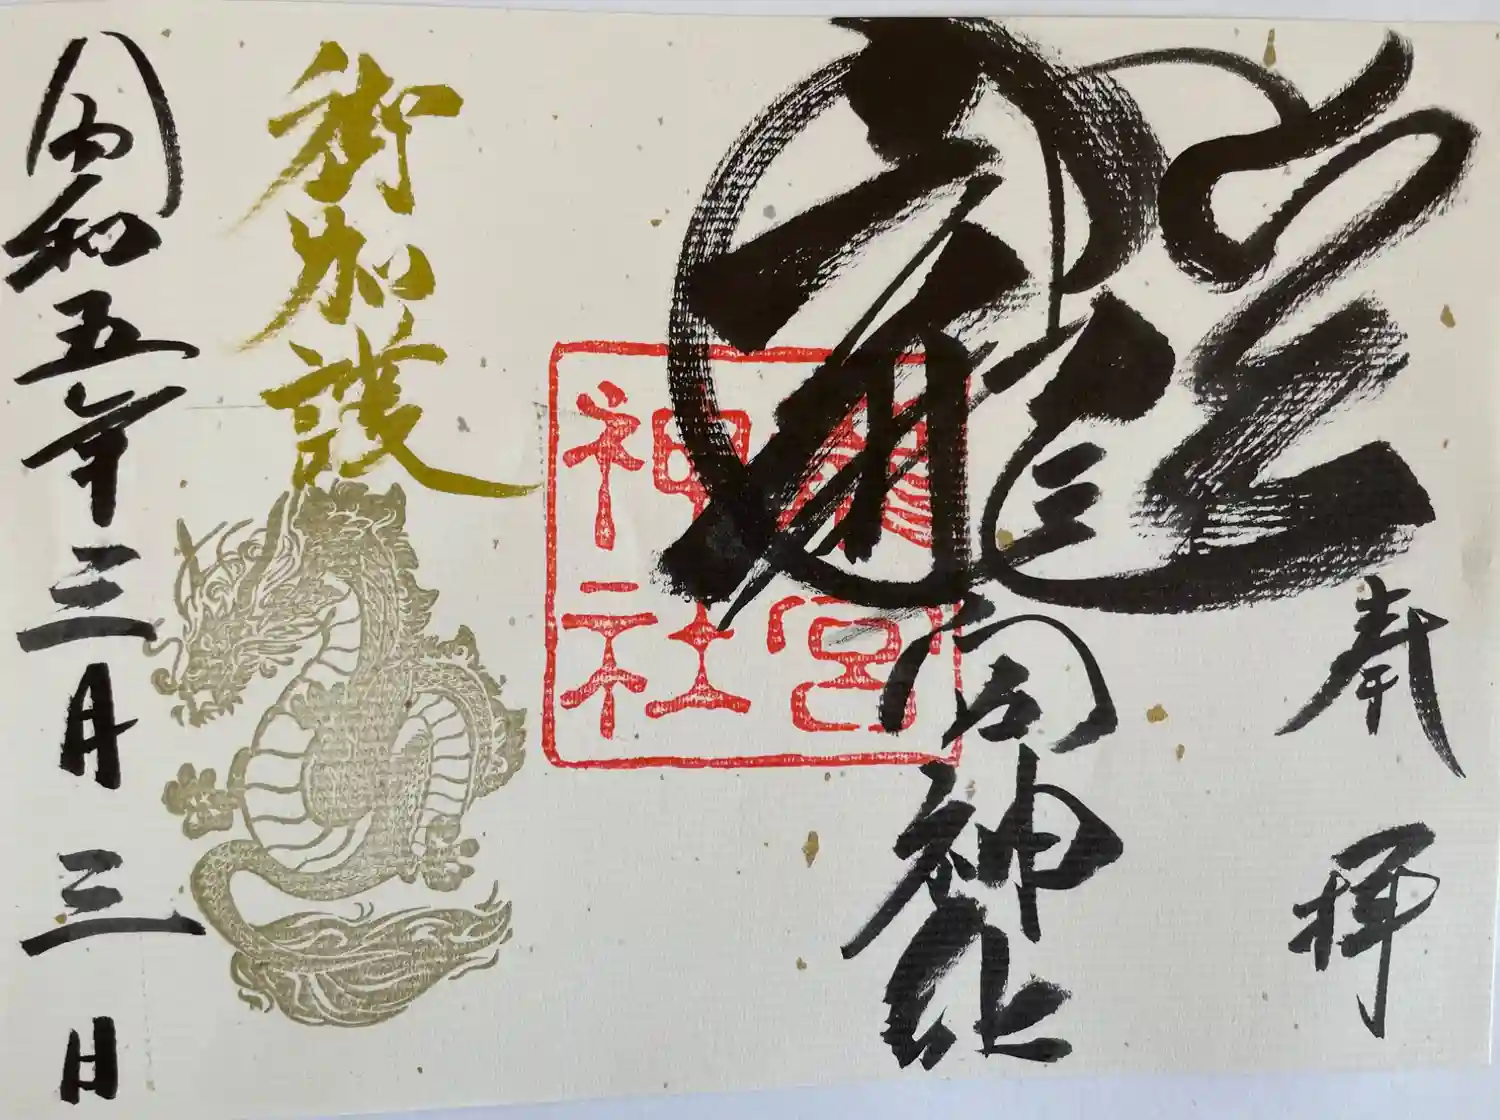 奉拝
龍宮神社
御加護
令和五年三月三日